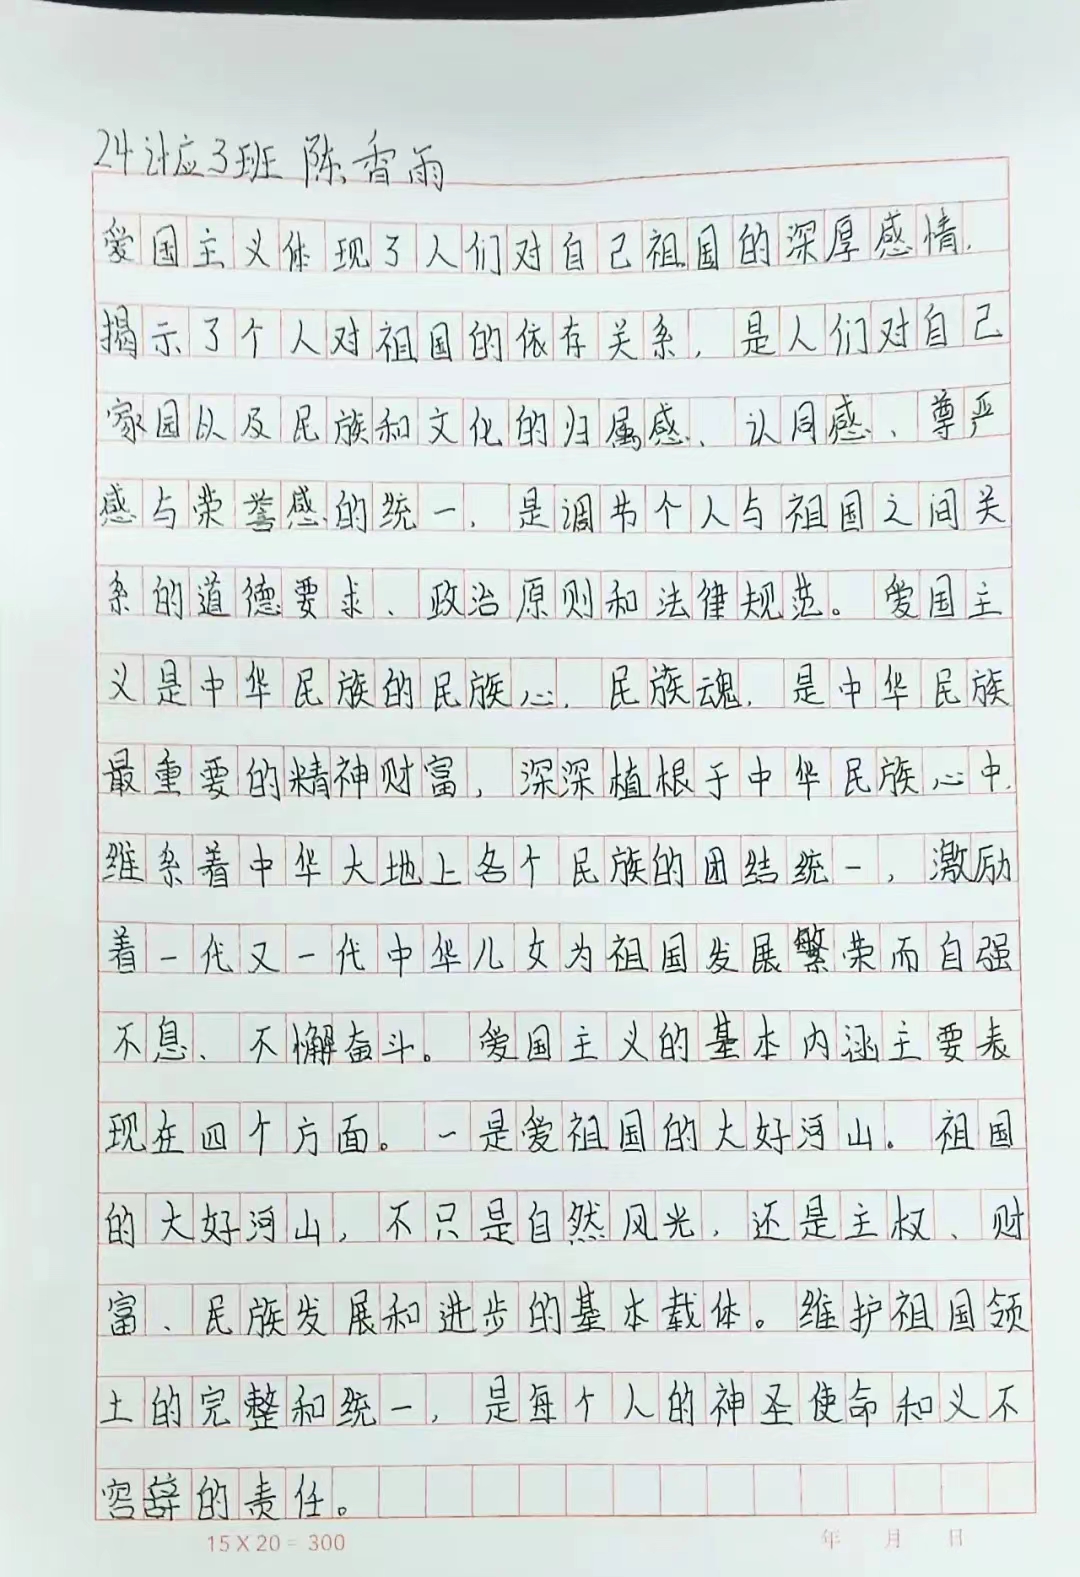 24计应3班 陈香雨
爱国主义体现了人们对自己祖国的深厚感情，
揭示了个人对祖国的依存关系，是人们对自己
家园以及民族和文化的归属感、认同感、尊严
感与荣誉感的统一，是调节个人与祖国之间关
系的道德要求、政治原则和法律规范。爱国主
义是中华民族的民族心，民族魂，是中华民族
最重要的精神财富，深深植根于中华民族心中，
维系着中华大地上各个民族的团结统一，激励
着一代又一代中华儿女为祖国发展繁荣而自强
不息、不懈奋斗。爱国主义的基本内涵主要表
现在四个方面。一是爱祖国的大好河山。祖国
的大好河山，不只是自然风光，还是主权、财
富、民族发展和进步的基本载体。维护祖国领
土的完整和统一，是每个人的神圣使命和义不
容辞的责任。
15X20=300 年 月 日